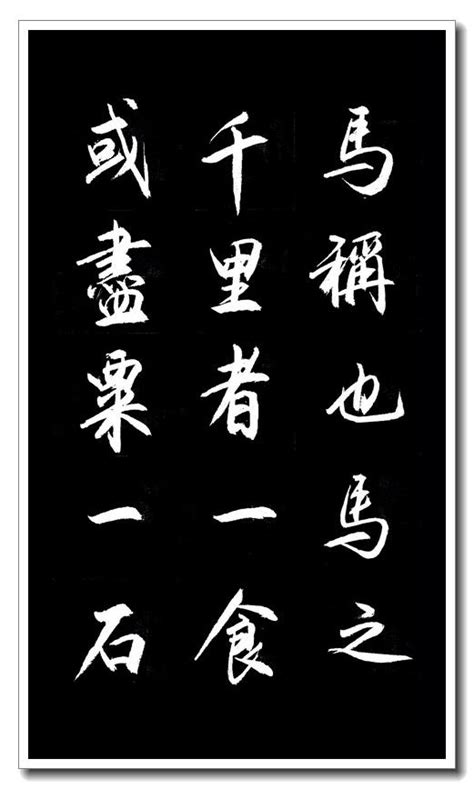 馬稱也馬之
千里者一食
或盡粟一石